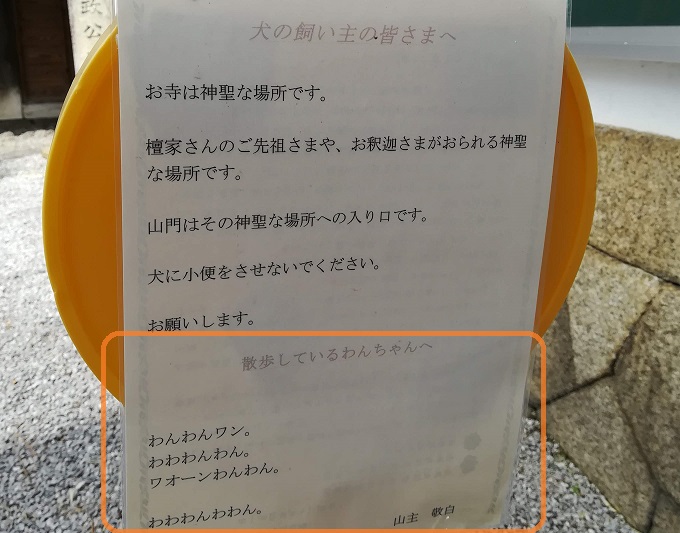 公
犬の飼い主の皆さまへ
お寺は神聖な場所です。
檀家さんのご先祖さまや、お釈迦さまがおられる神聖
な場所です。
山門はその神聖な場所への入り口です。
犬に小便をさせないでください。
お願いします。
散歩しているわんちゃんへ
わんわんワン。
わわわんわん。
ワオーンわんわん。
わわわんわわん。
山主 敬白